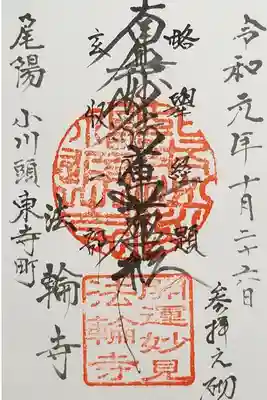 令和元年十月二十六日
参拝之砌
略舉経題
南無妙法蓮華経
玄収一部
法輪寺
尾陽 小川頭東寺町
開運妙見
法輪寺